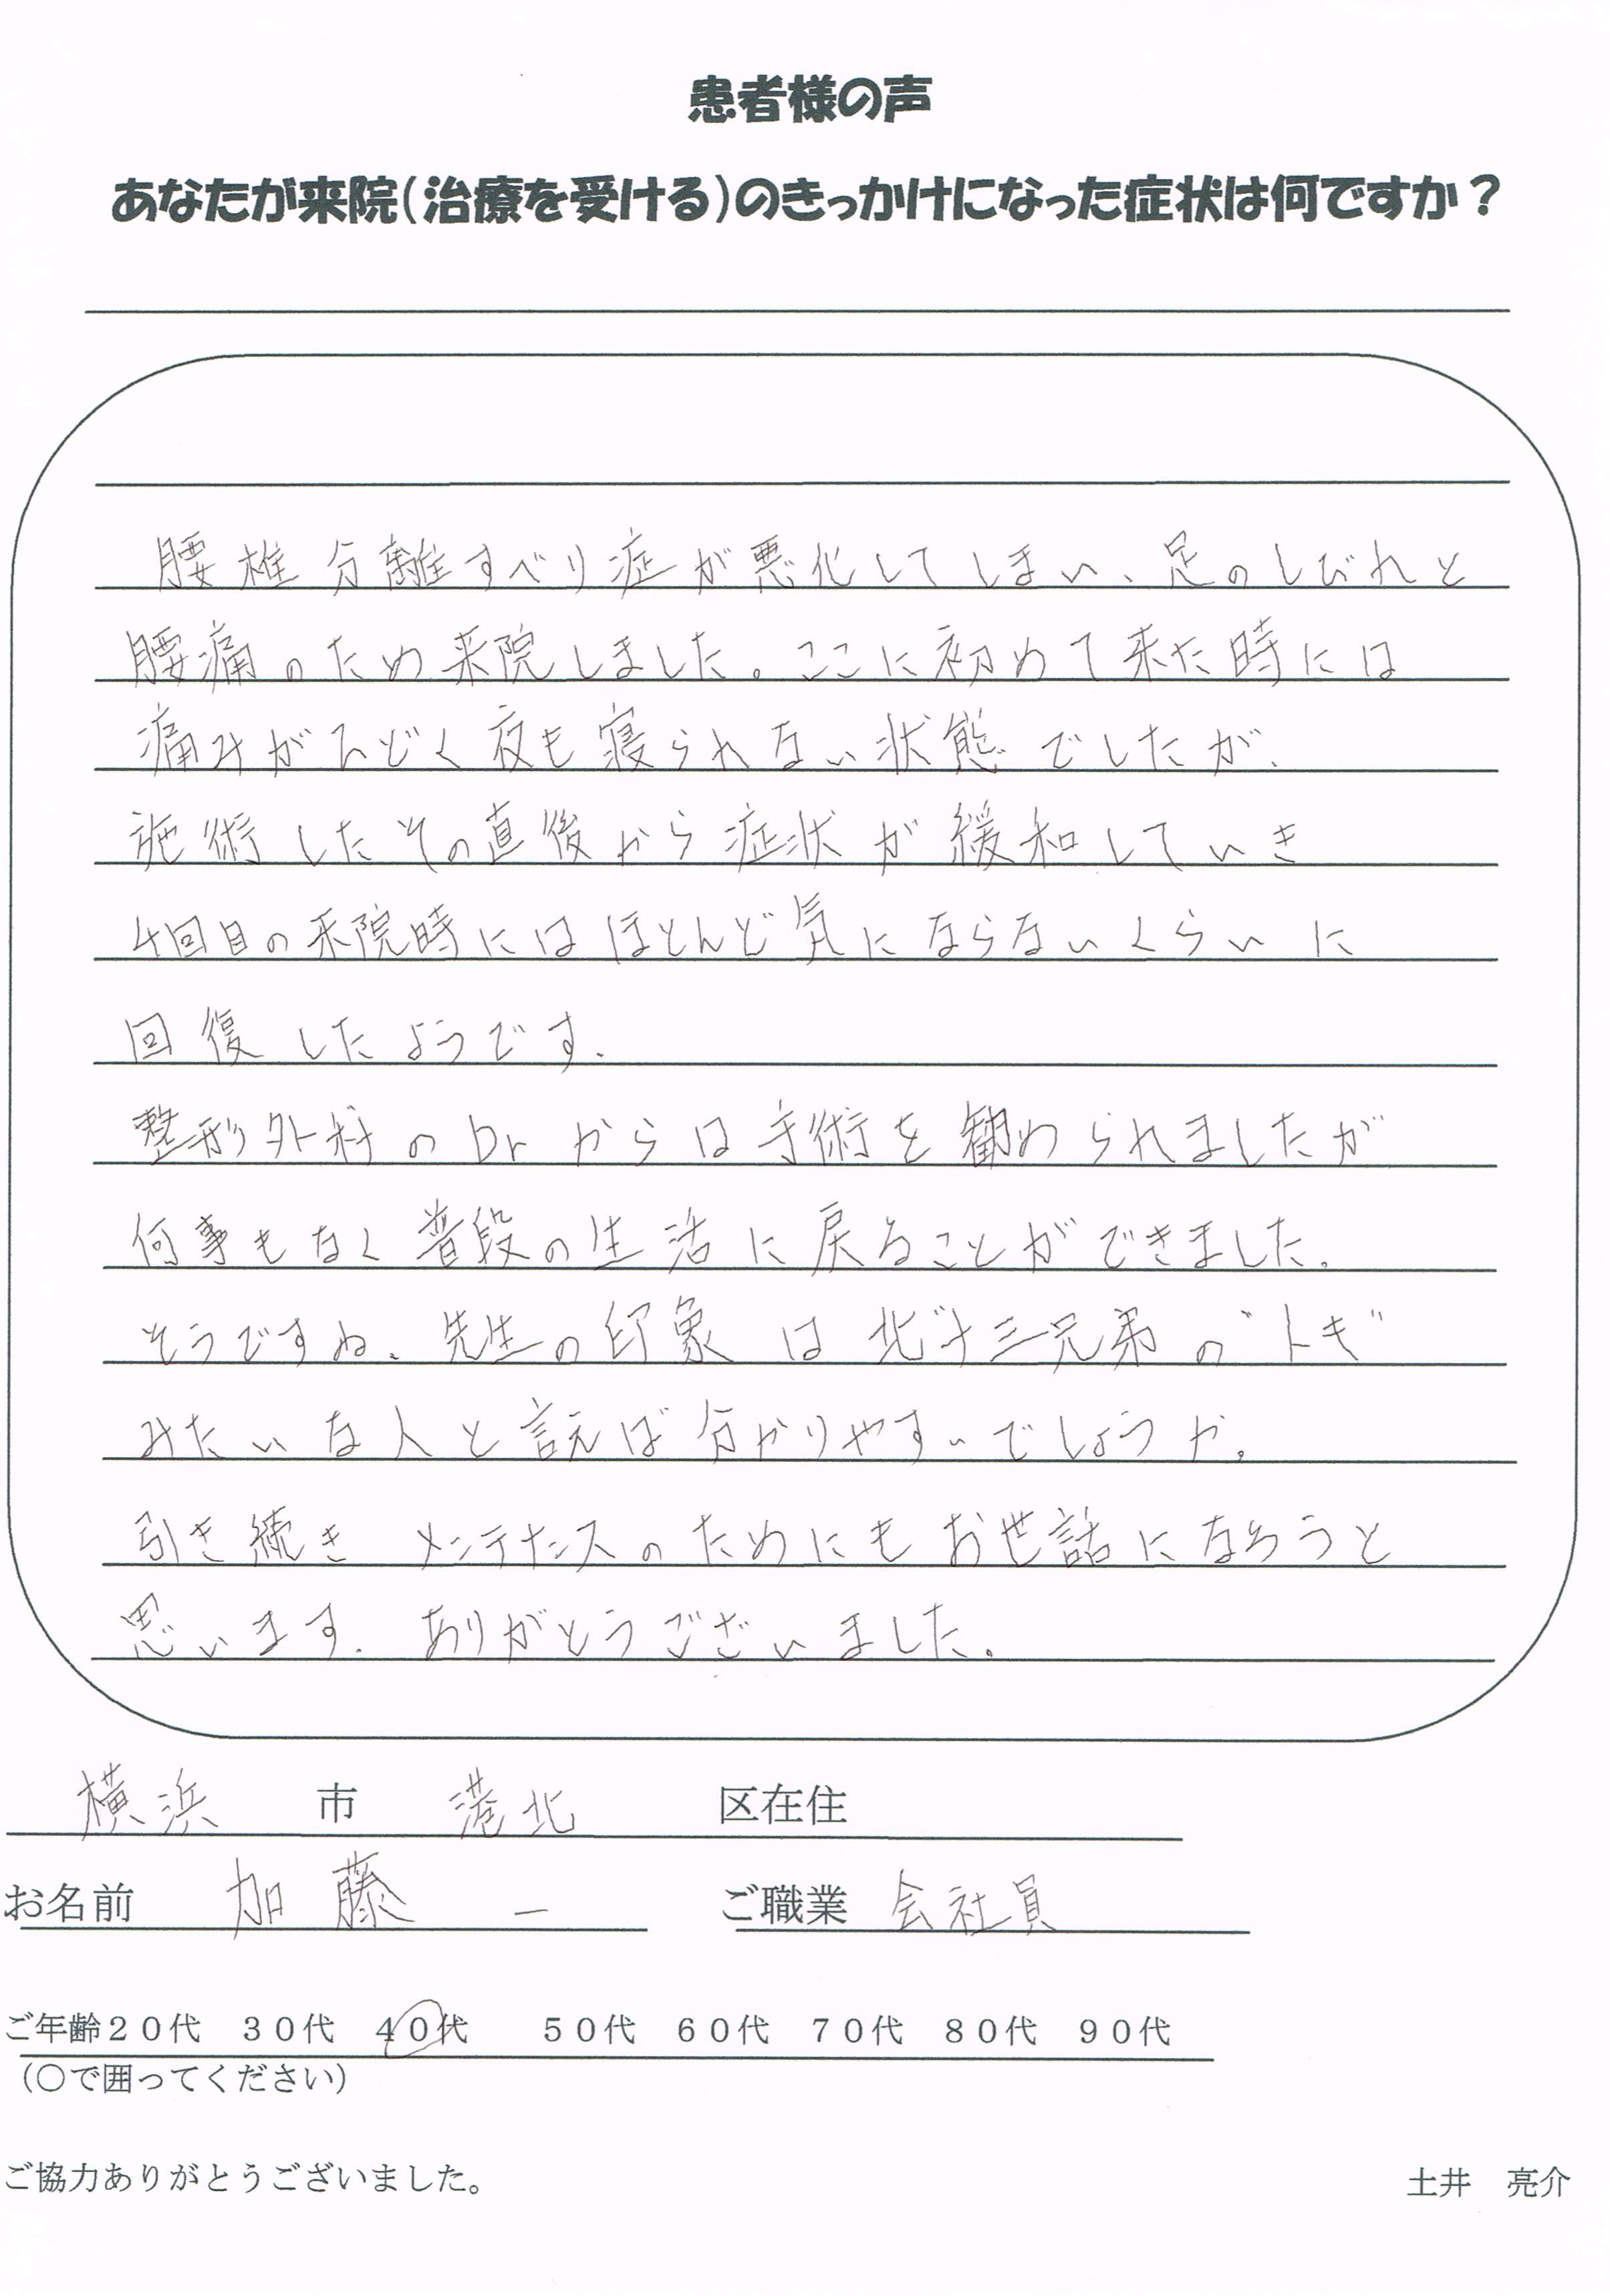 患者様の声
あなたが来院(治療を受ける)のきっかけになった症状は何ですか?
腰椎分離すべり症が悪化してしまい、足のしびれと
腰痛のため来院しました。ここに初めて来た時には
痛みがひどく夜も寝られない状態でしたが、
施術したその直後から症状が緩和していき
4回目の来院時にはほとんど気にならないくらいに
回復したようです。
整形外科のDrからは手術を勧められましたが
何事もなく普段の生活に戻ることができました。
そうですね、先生の印象は北斗三兄弟の"トキ"
みたいな人と言えば分かりやすいでしょうか。
引き続きメンテナンスのためにもお世話になろうと
思います。ありがとうございました。
横浜 市 港北 区在住
お名前 加藤 一 ご職業 会社員
ご年齢20代 30代 40代 50代 60代 70代 80代 90代
(○で囲ってください)
ご協力ありがとうございました。 土井 亮介